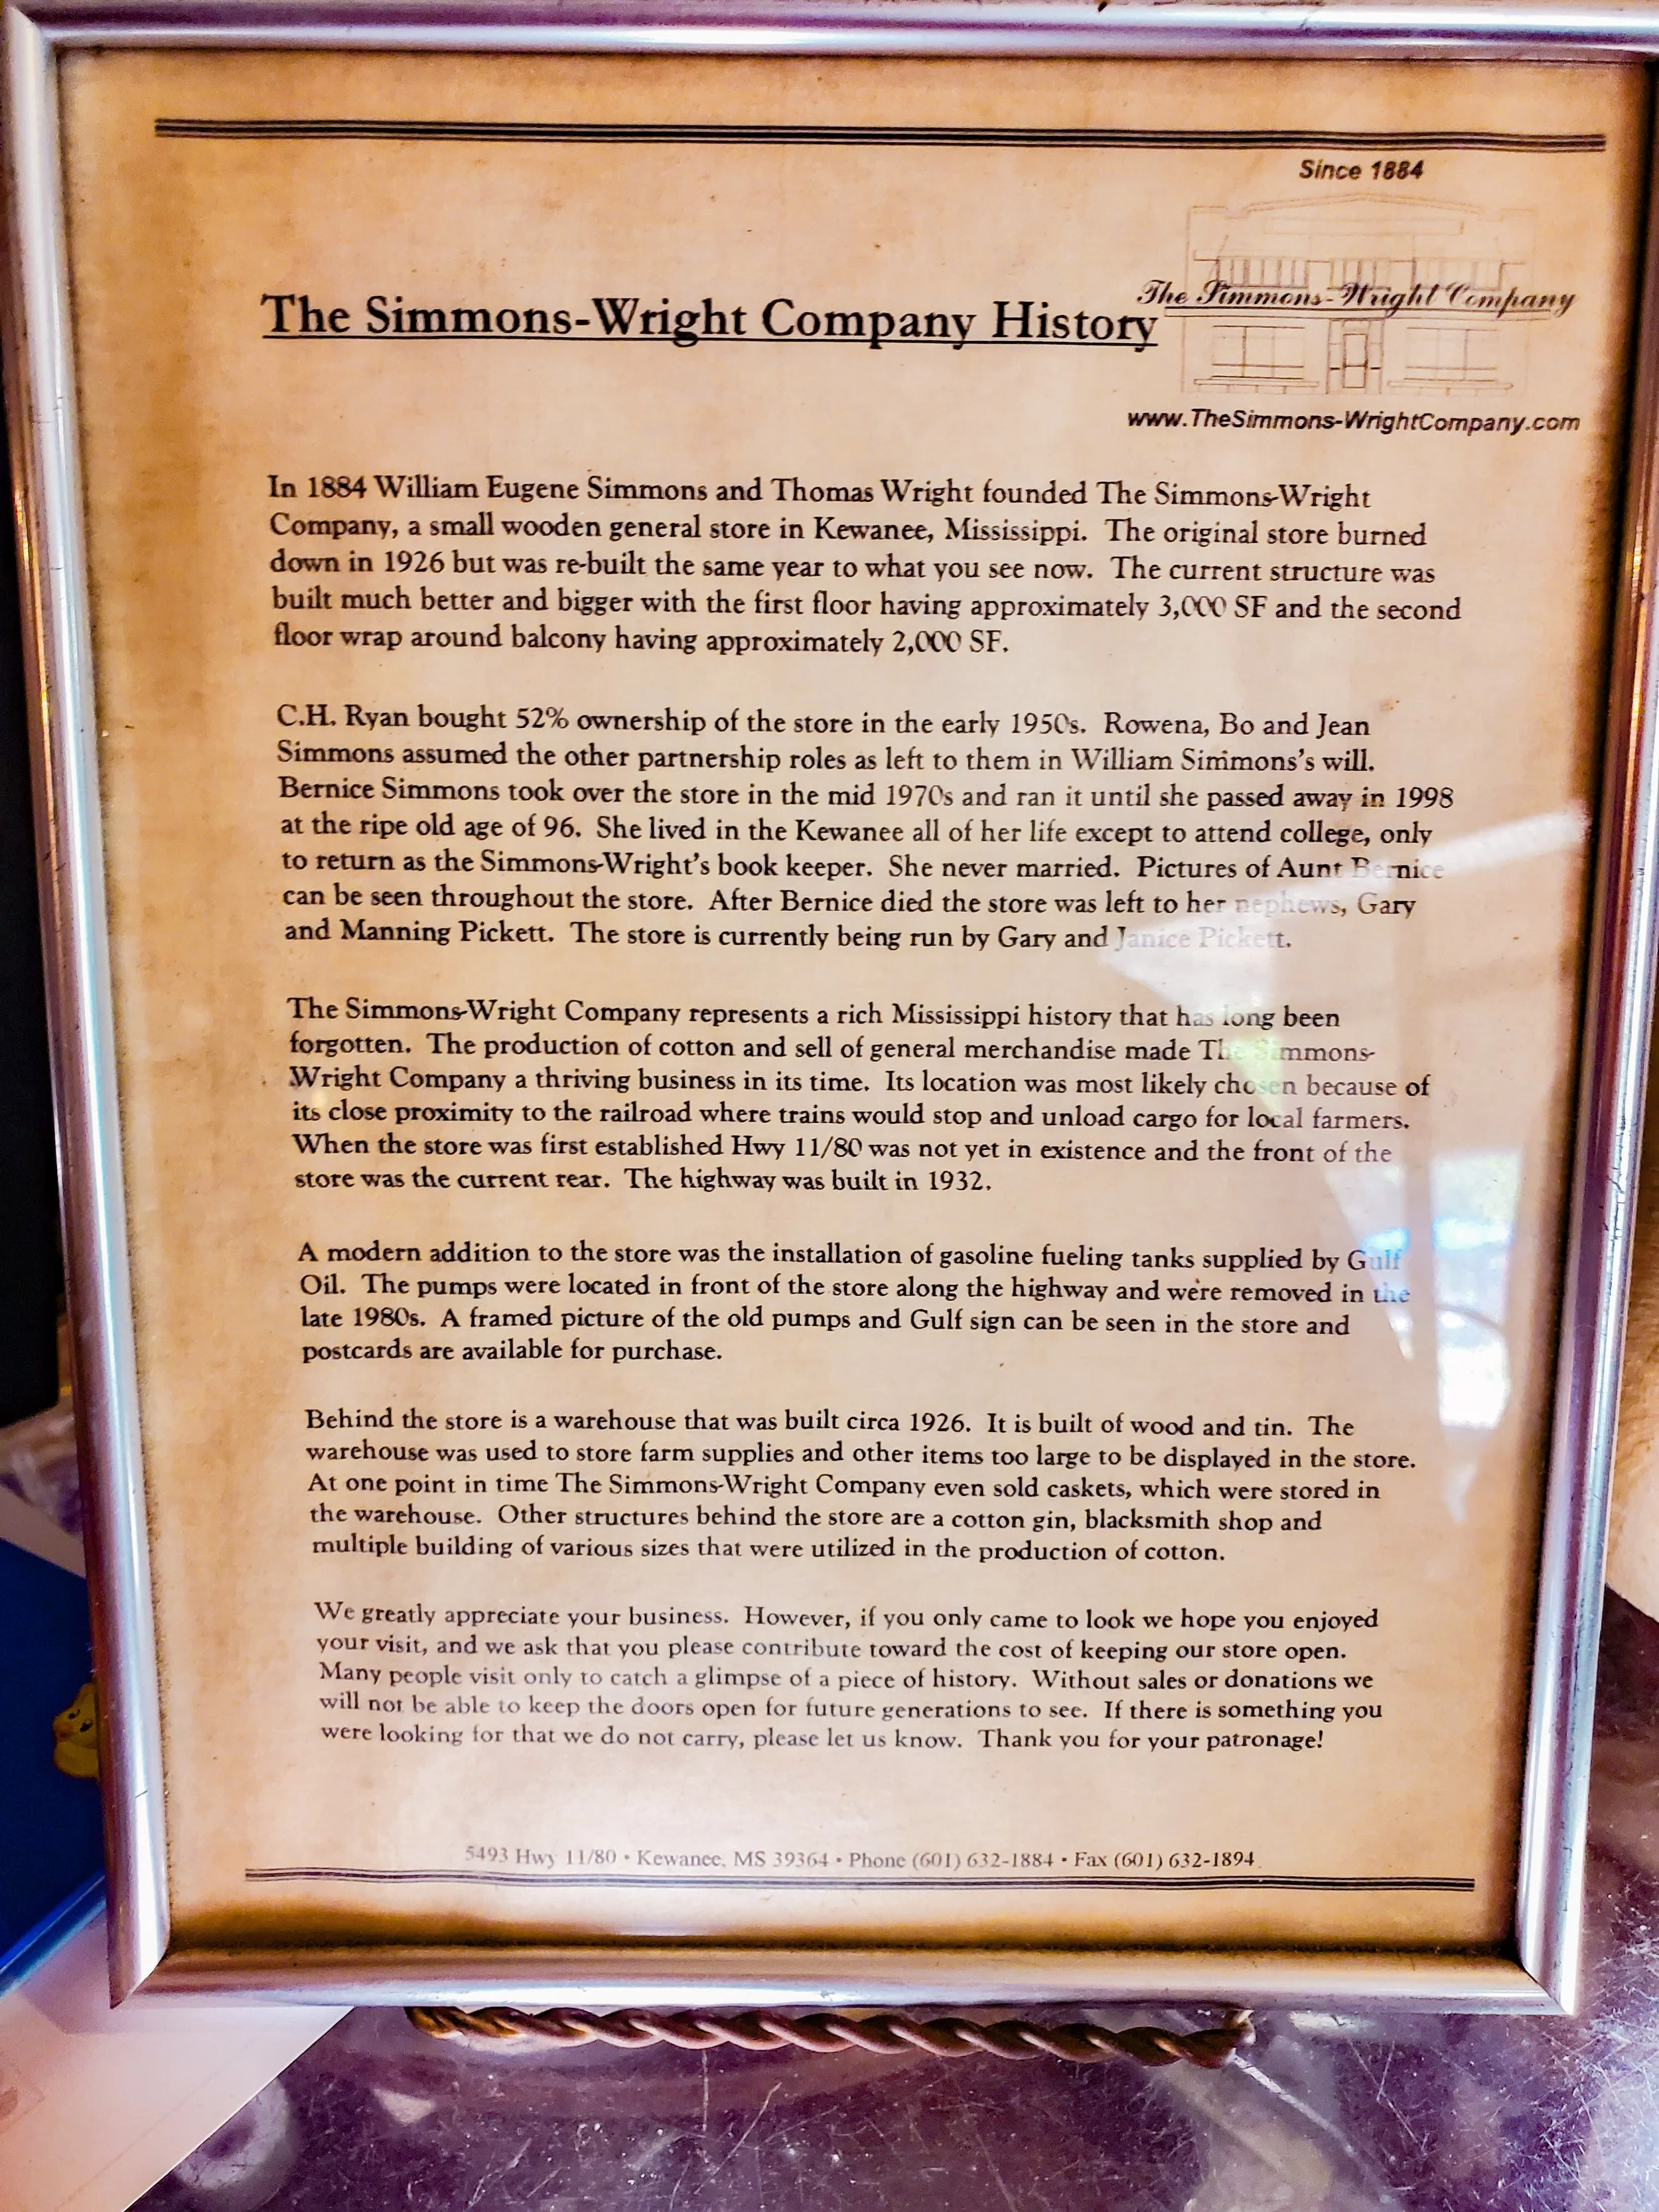 Since 1884
The Simmons-Wright Company
The Simmons-Wright Company History
www.TheSimmons-WrightCompany.com
In 1884 William Eugene Simmons and Thomas Wright founded The Simmons-Wright
Company, a small wooden general store in Kewanee, Mississippi. The original store burned
down in 1926 but was re-built the same year to what you see now. The current structure was
built much better and bigger with the first floor having approximately 3,000 SF and the second
floor wrap around balcony having approximately 2,000 SF.
C.H. Ryan bought 52% ownership of the store in the early 1950s. Rowena, Bo and Jean
Simmons assumed the other partnership roles as left to them in William Simmons's will.
Bernice Simmons took over the store in the mid 1970s and ran it until she passed away in 1998
at the ripe old age of 96. She lived in the Kewanee all of her life except to attend college, only
to return as the Simmons-Wright's book keeper. She never married. Pictures of Aunt Bernice
can be seen throughout the store. After Bernice died the store was left to her nephews, Gary
and Manning Pickett. The store is currently being run by Gary and Janice Pickett.
The Simmons-Wright Company represents a rich Mississippi history that has long been
forgotten. The production of cotton and sell of general merchandise made The Simmons-
Wright Company a thriving business in its time. Its location was most likely chosen because of
its close proximity to the railroad where trains would stop and unload cargo for local farmers.
When the store was first established Hwy 11/80 was not yet in existence and the front of the
store was the current rear. The highway was built in 1932.
A modern addition to the store was the installation of gasoline fueling tanks supplied by Gulf
Oil. The pumps were located in front of the store along the highway and were removed in the
late 1980s. A framed picture of the old pumps and Gulf sign can be seen in the store and
postcards are available for purchase.
Behind the store is a warehouse that was built circa 1926. It is built of wood and tin. The
warehouse was used to store farm supplies and other items too large to be displayed in the store.
At one point in time The Simmons-Wright Company even sold caskets, which were stored in
the warehouse. Other structures behind the store are a cotton gin, blacksmith shop and
multiple building of various sizes that were utilized in the production of cotton.
We greatly appreciate your business. However, if you only came to look we hope you enjoyed
your visit, and we ask that you please contribute toward the cost of keeping our store open.
Many people visit only to catch a glimpse of a piece of history. Without sales or donations we
will not be able to keep the doors open for future generations to see. If there is something you
were looking for that we do not carry, please let us know. Thank you for your patronage!
5493 Hwy 11/80 • Kewanee, MS 39364 • Phone (601) 632-1884 • Fax (601) 632-1894